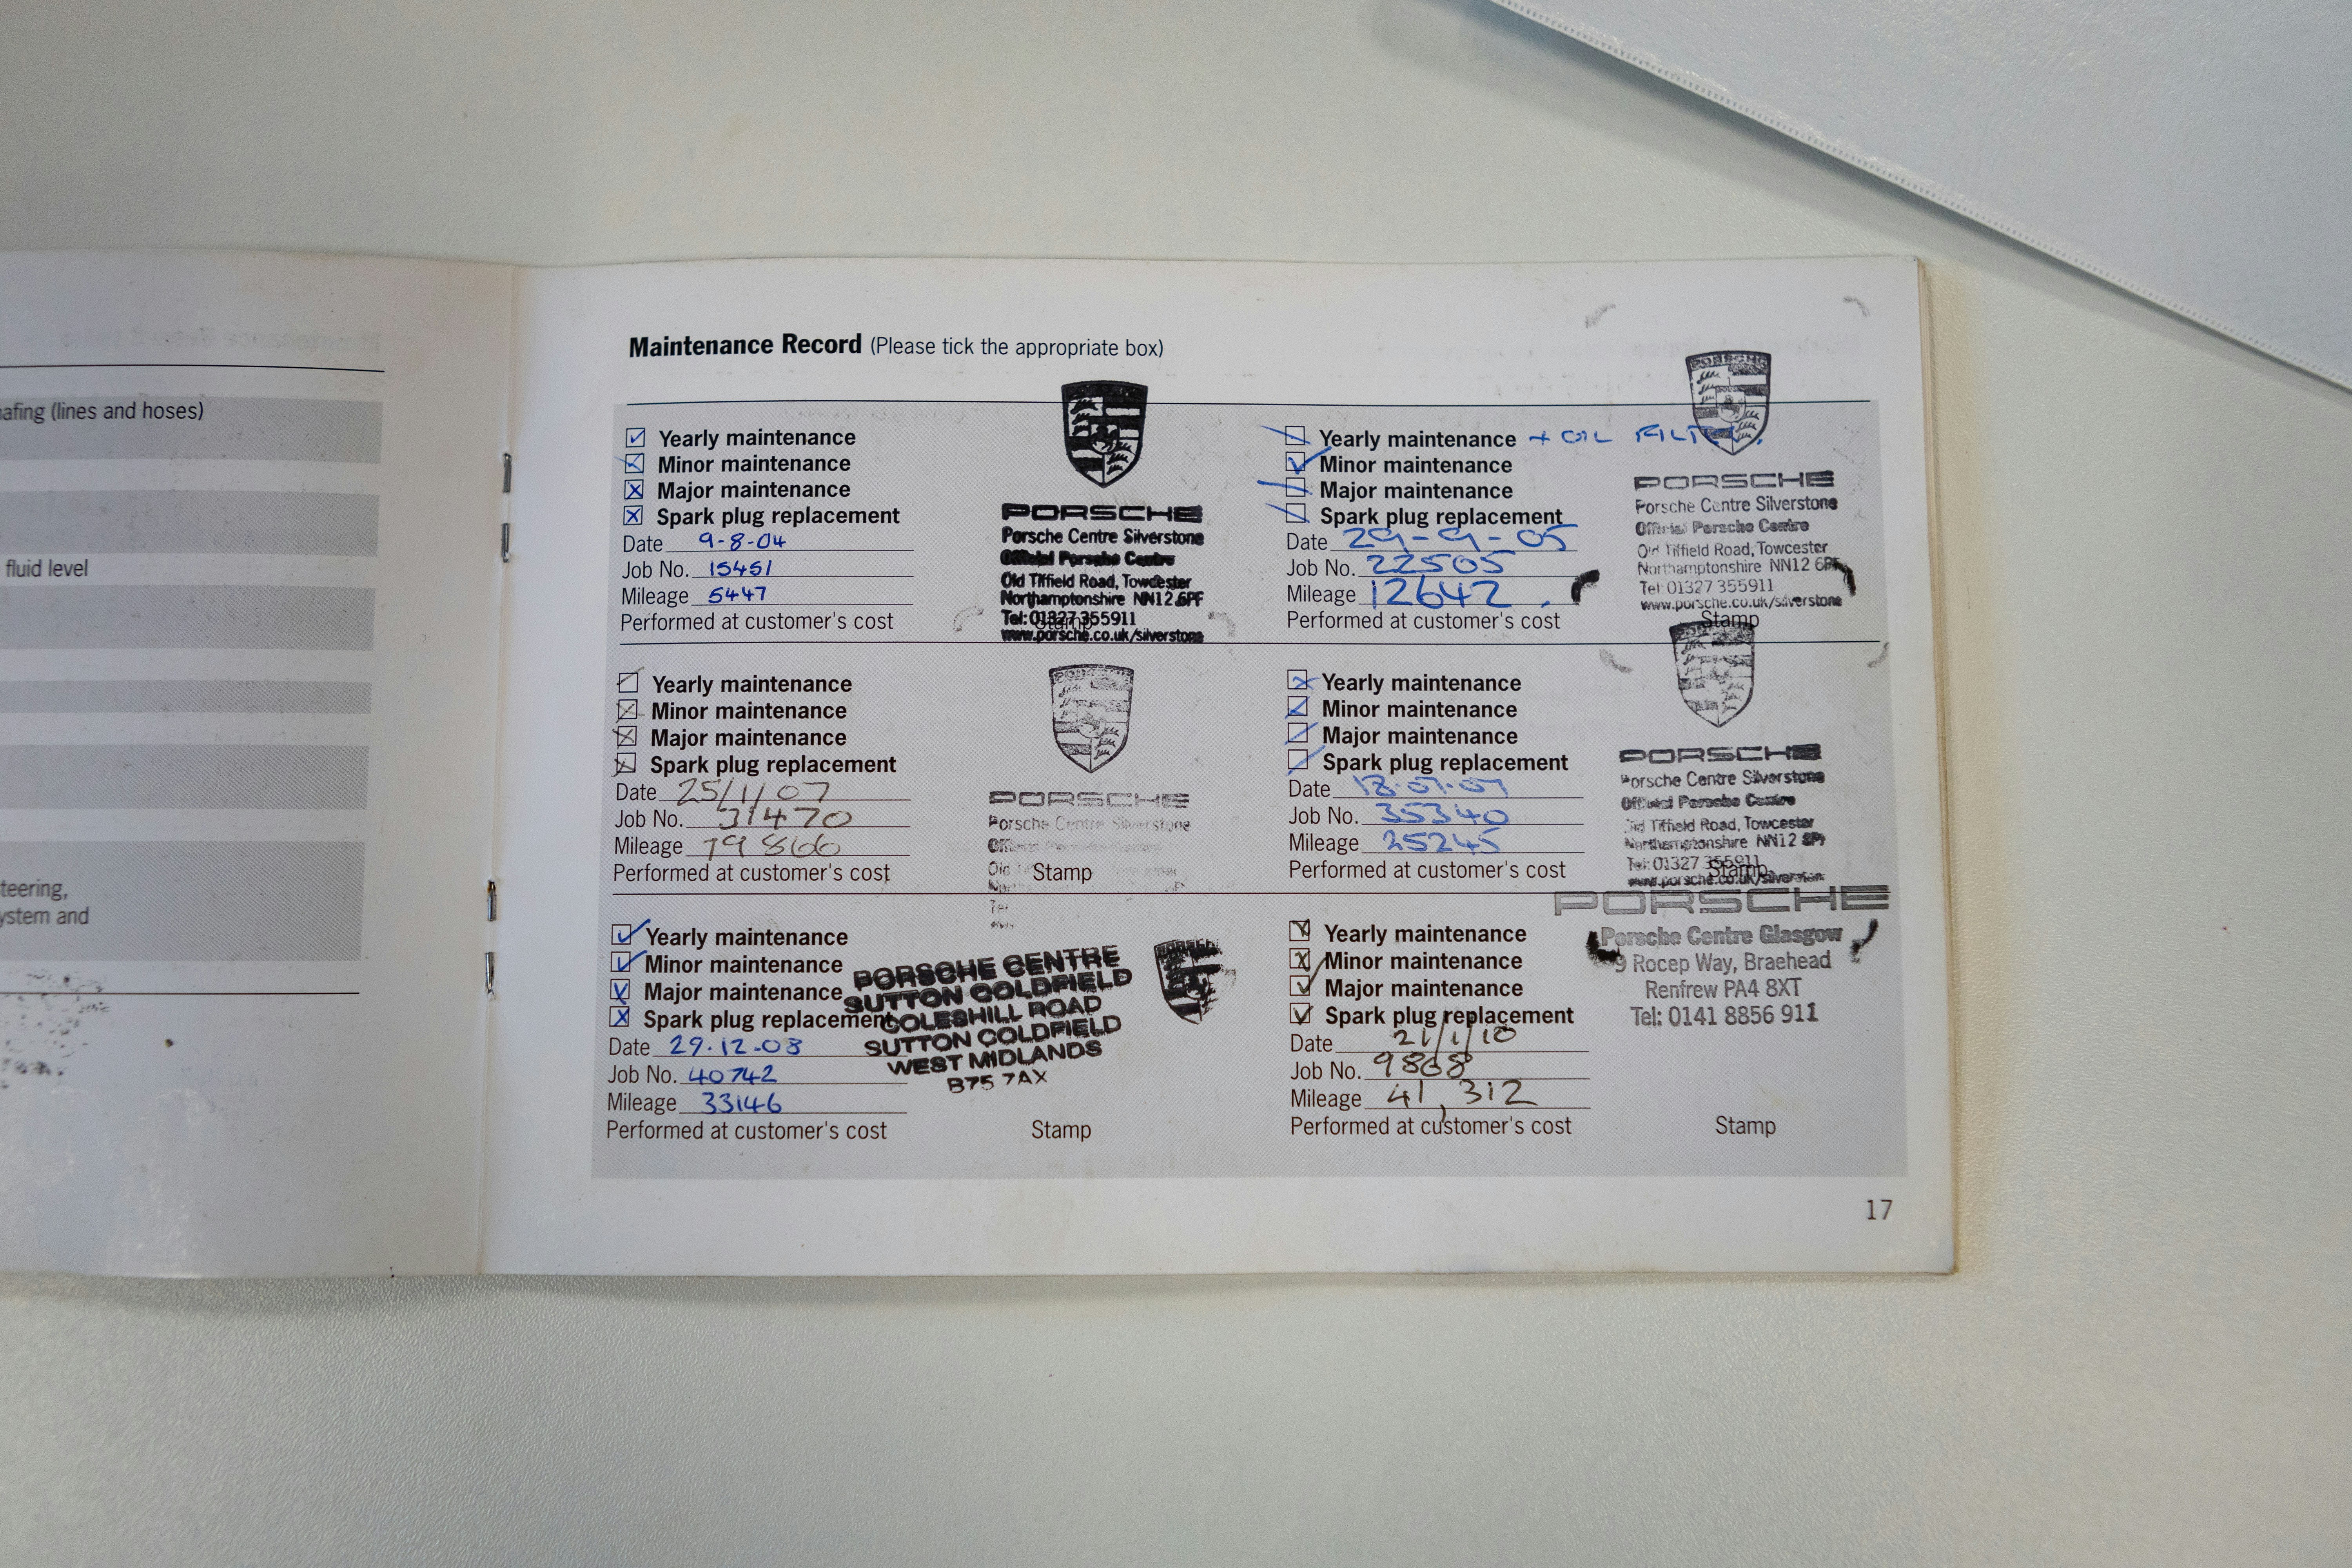 hafing (lines and hoses)
fluid level
teering,
ystem and
Maintenance Record (Please tick the appropriate box)
Yearly maintenance
Minor maintenance
Major maintenance
Spark plug replacement
Date 9-8-04
Job No. 15451
Mileage 5447
Performed at customer's cost
PORSCHE
Porsche Centre Silverstone
Official Porsche Centre
Old Tiffield Road, Towcester
Northamptonshire NN12 6PF
Tel: 01327 355911
www.porsche.co.uk/silverstone
Stamp
Yearly maintenance + OIL
Minor maintenance
Major maintenance
Spark plug replacement
Date 29-9-05
Job No. 22505
Mileage 12642
Performed at customer's cost
PORSCHE
PORSCHE
Porsche Centre Silverstone
Official Porsche Centre
Old Tiffield Road, Towcester
Northamptonshire NN12 6PF
Tel: 01327 355911
www.porsche.co.uk/silverstone
Stamp
Yearly maintenance
Minor maintenance
Major maintenance
Spark plug replacement
Date 25/1/07
Job No. 31470
Mileage 19866
Performed at customer's cost
PORSCHE
Porsche Centre Silverstone
Old
Stamp
Tel
Yearly maintenance
Minor maintenance
Major maintenance
Spark plug replacement
Date
Job No. 35340
Mileage 25245
Performed at customer's cost
PORSCHE
Porsche Centre Silverstone
Official Porsche Centre
Old Tiffield Road, Towcester
Northamptonshire NN12 6PF
Tel: 01327 355911
www.porsche.co.uk/silverstone
Stamp
Yearly maintenance
Minor maintenance
Major maintenance
Spark plug replacement
Date 29.12.08
Job No. 40742
Mileage 33146
Performed at customer's cost
PORSCHE CENTRE
SUTTON COLDFIELD
COLESHILL ROAD
SUTTON COLDFIELD
WEST MIDLANDS
B75 7AX
Stamp
Yearly maintenance
Minor maintenance
Major maintenance
Spark plug replacement
Date 21/1/10
Job No. 9868
Mileage 41,312
Performed at customer's cost
PORSCHE
Porsche Centre Glasgow
9 Rocep Way, Braehead
Renfrew PA4 8XT
Tel: 0141 8856 911
Stamp
17